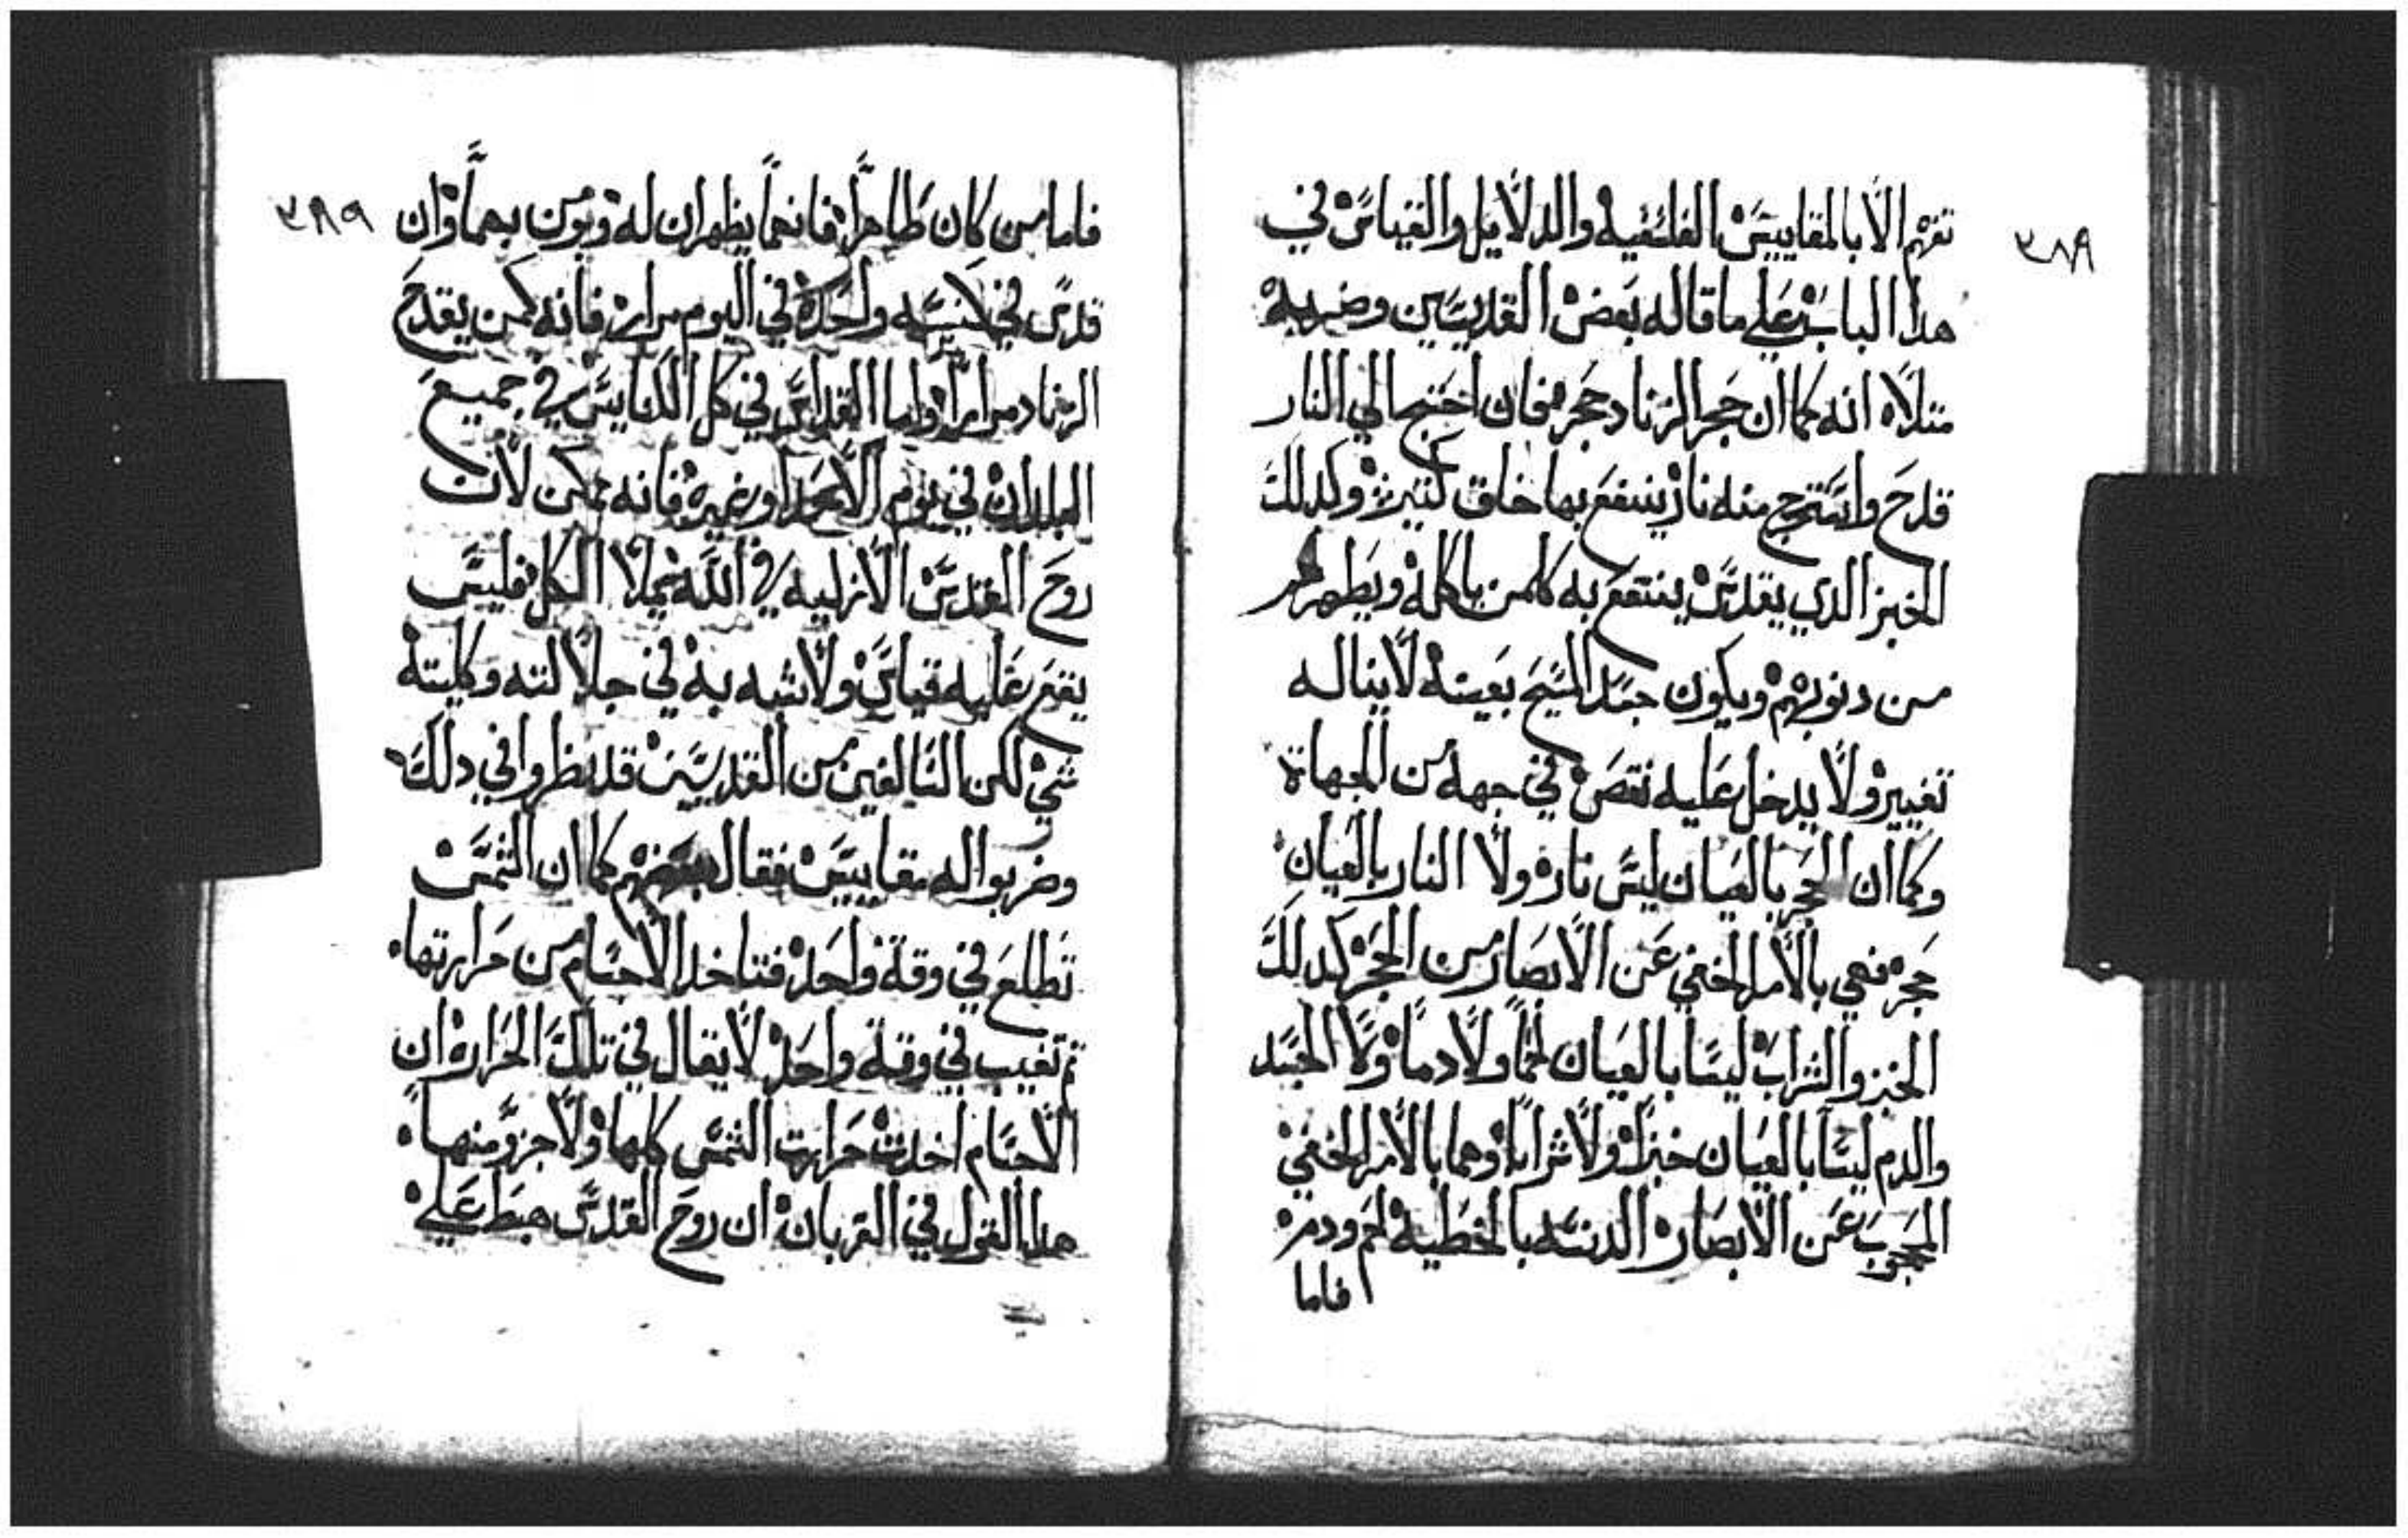 ٣٨٩
تفهم الا بالمقاييس الفلسفيه والدلايل والقياس في
هدا الباب على ما قاله بعض القديسين وضربه
متلا انه كما ان حجر الزناد حجر فان احتيج الي النار
قدح واستخرج منه نار ينتفع بها خلق كتيره وكدلك
الخبز الدي يقدس ينتفع به كلمن ياكله ويطهرهم
من دنوبهم ويكون جسد المسيح بعينه لا يناله
تغيير ولا يدخل عليه نقص في جهه من الجهاة
وكما ان الحجر بالعيان ليس ناره ولا النار بالعيان
حجر فهي بالامر الخفي عن الابصار من الحجر كدلك
الخبز والشراب ليسا بالعيان لحماً ولا دماً ولا الجسد
والدم ليسا بالعيان خبزاً ولا شراباً وهما بالامر الخفي
المحجوب عن الابصار الدنسه بالخطيه لحم ودم
فاما
٣٨٩
فاما من كان طاهراً فانهما يظهران له ويومن بهما وان
قدس في كنيسه واحده في اليوم مرار فانه كمن يقدح
الزناد مراراً واما القداس في كل الكنايس في جميع
البلدان في يوم الاحد او غيره فانه ممكن لان
روح القدس الازليه في الله تملا الكل فليس
يقع عليه قياس ولا شبه به في جلالته وكليته
شي لكن السالفين من القديسين قد نظروا في دلك
وضربوا له مقاييس فقال بعضهم كما ان الشمس
تطلع في وقة واحد فتاخد الاجسام من حرارتها
تم تغيب في وقة واحد لا يقال في تلك الحراره ان
الاجسام اخدت حرارت الشمس كلها ولا جزو منها
هدا القول في القربان ان روح القدس هبط على